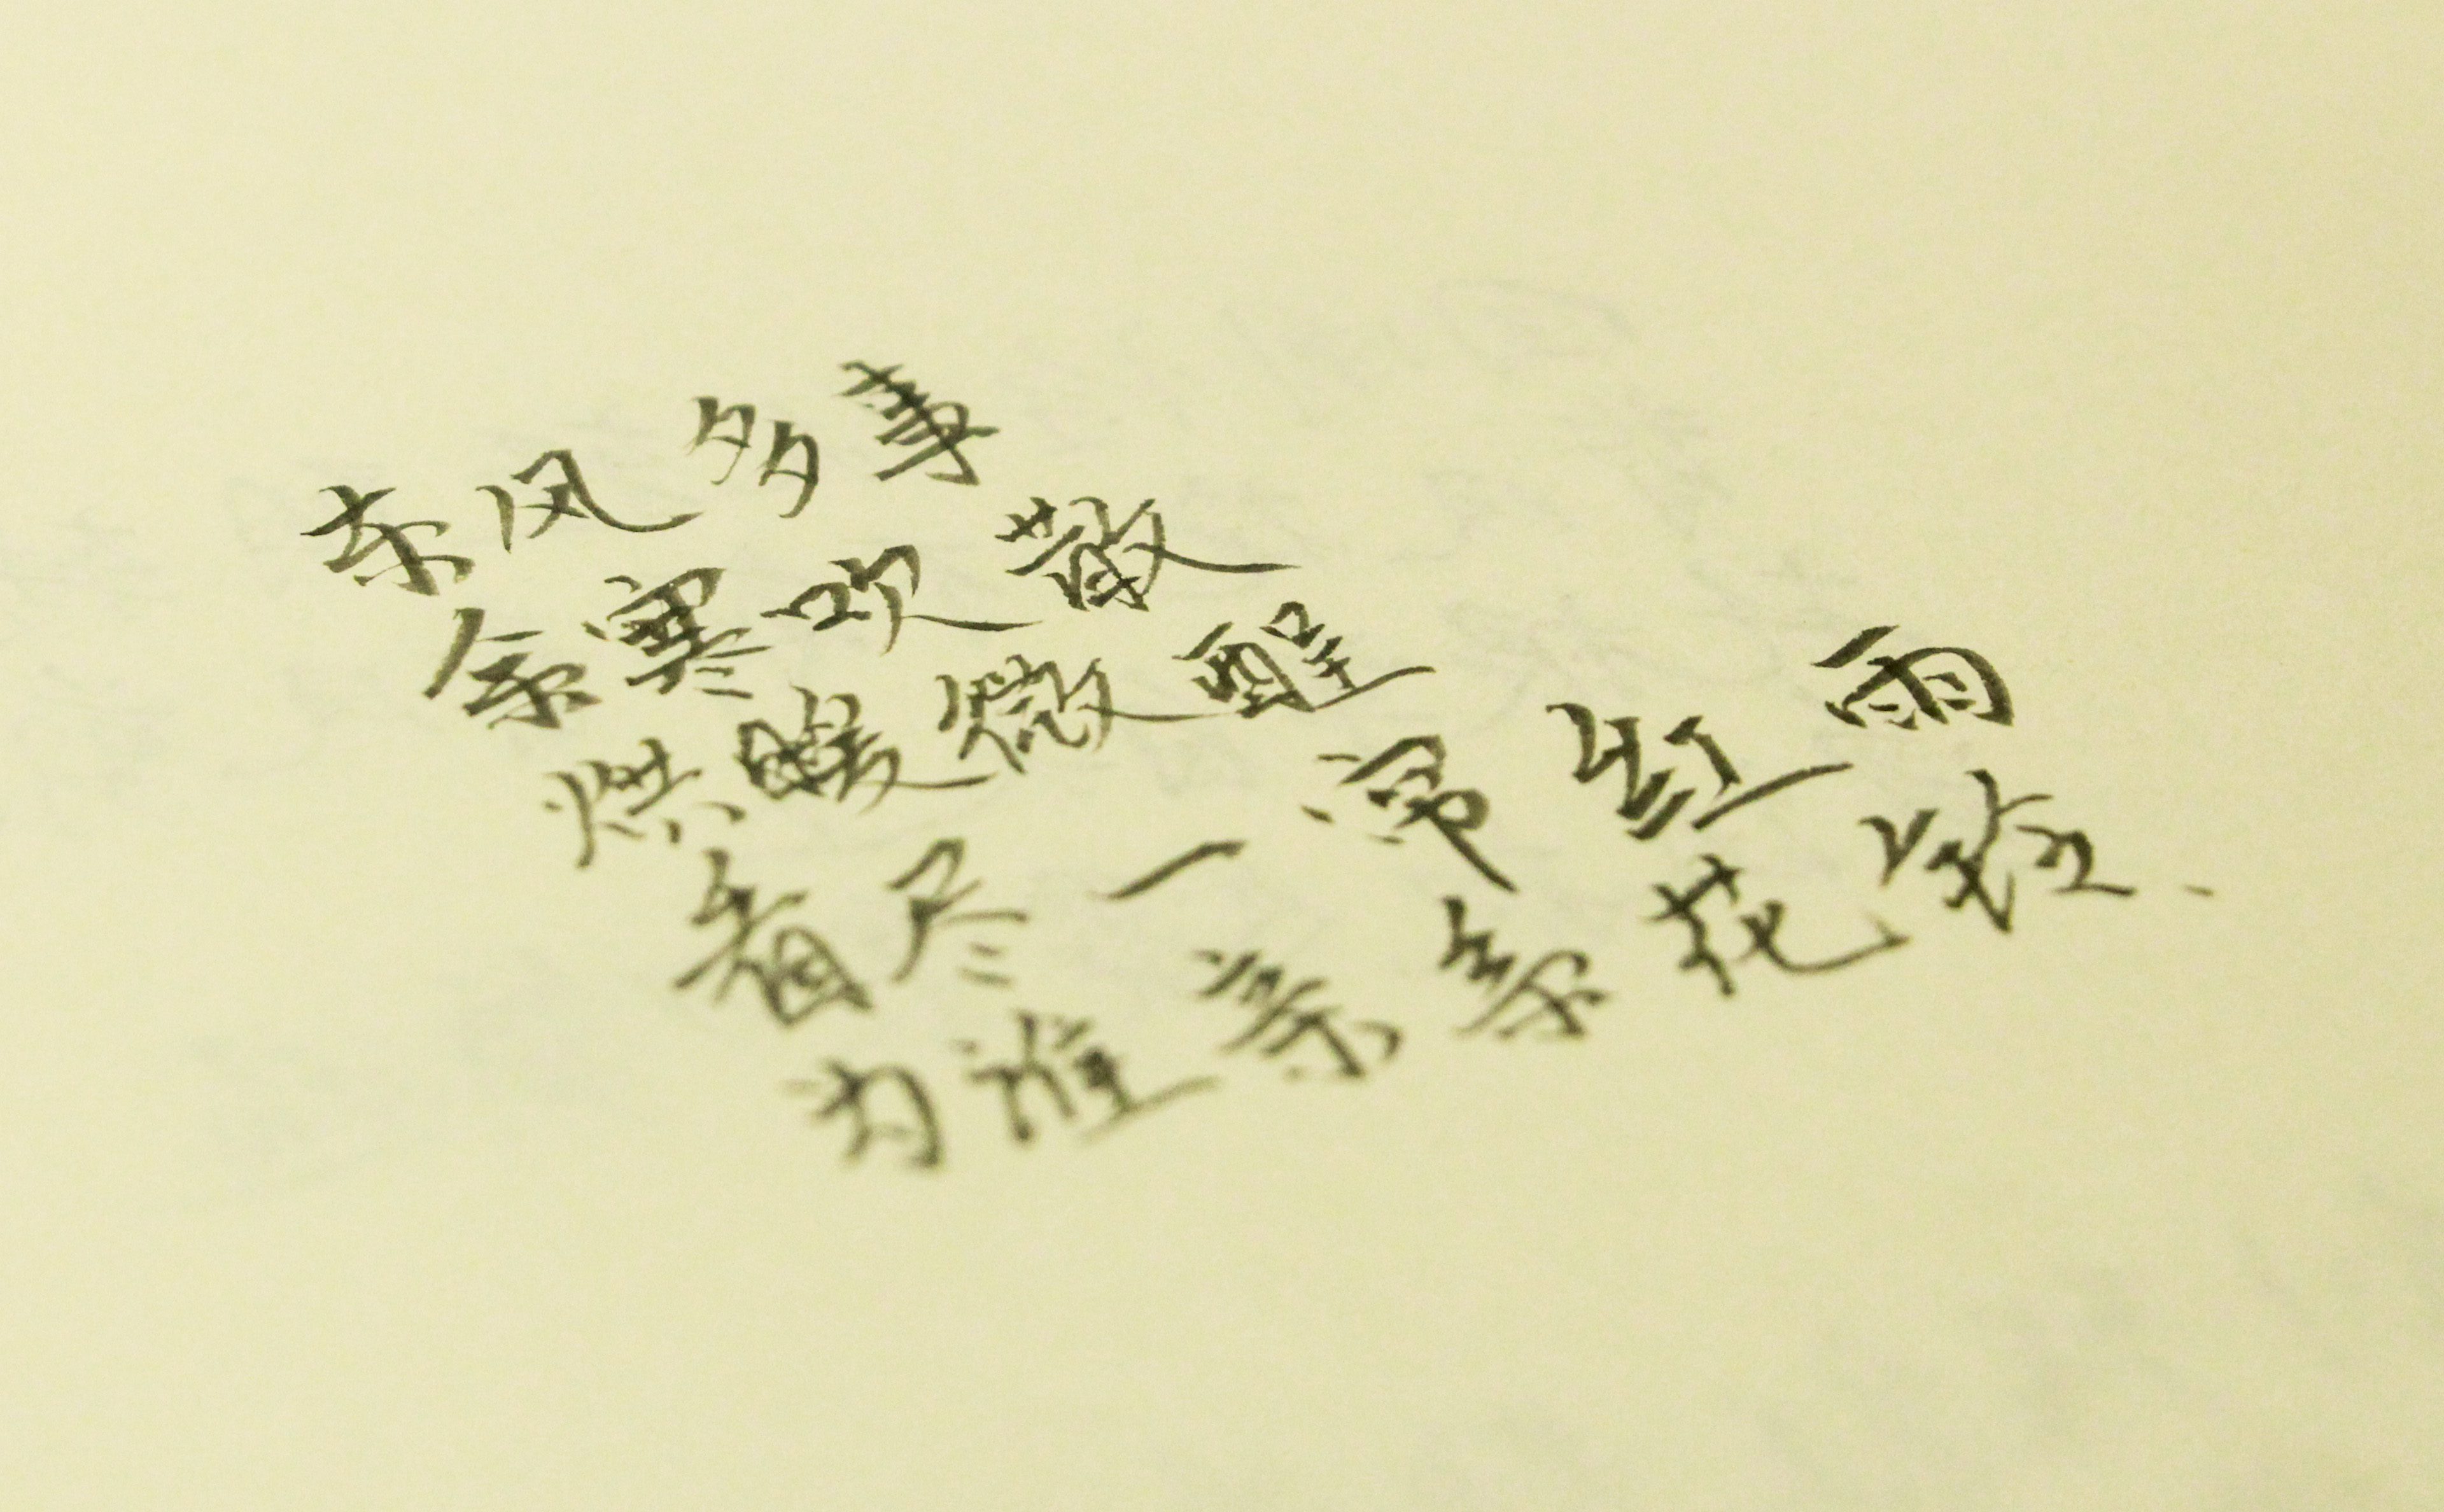 东风多事
余寒吹散
烘暖微酲
看尽一帘红雨
为谁亲系花铃.